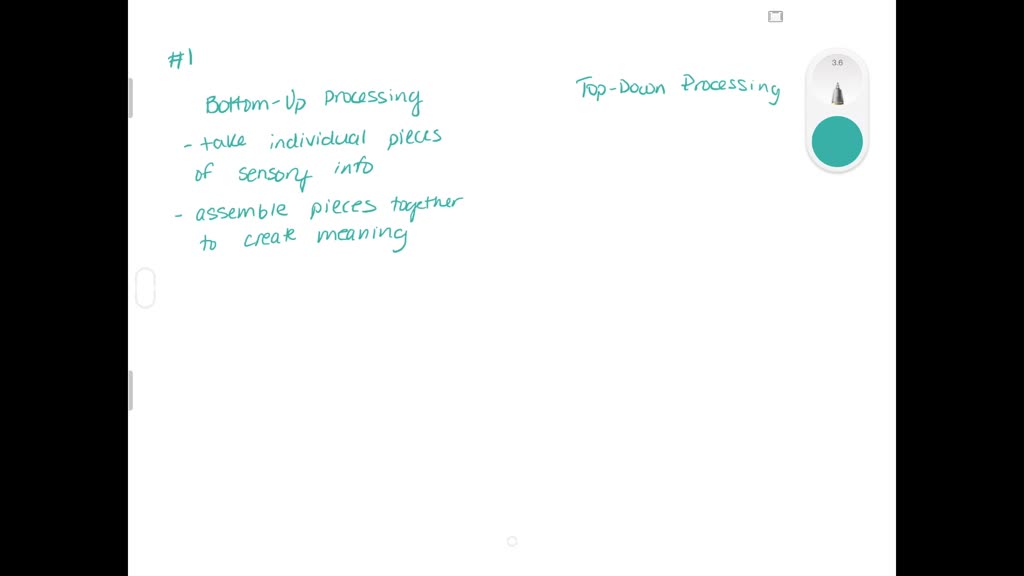 #1
Bottom-Up Processing
- take individual pieces
of sensory info
- assemble pieces together
to create meaning
Top-Down Processing
3.6